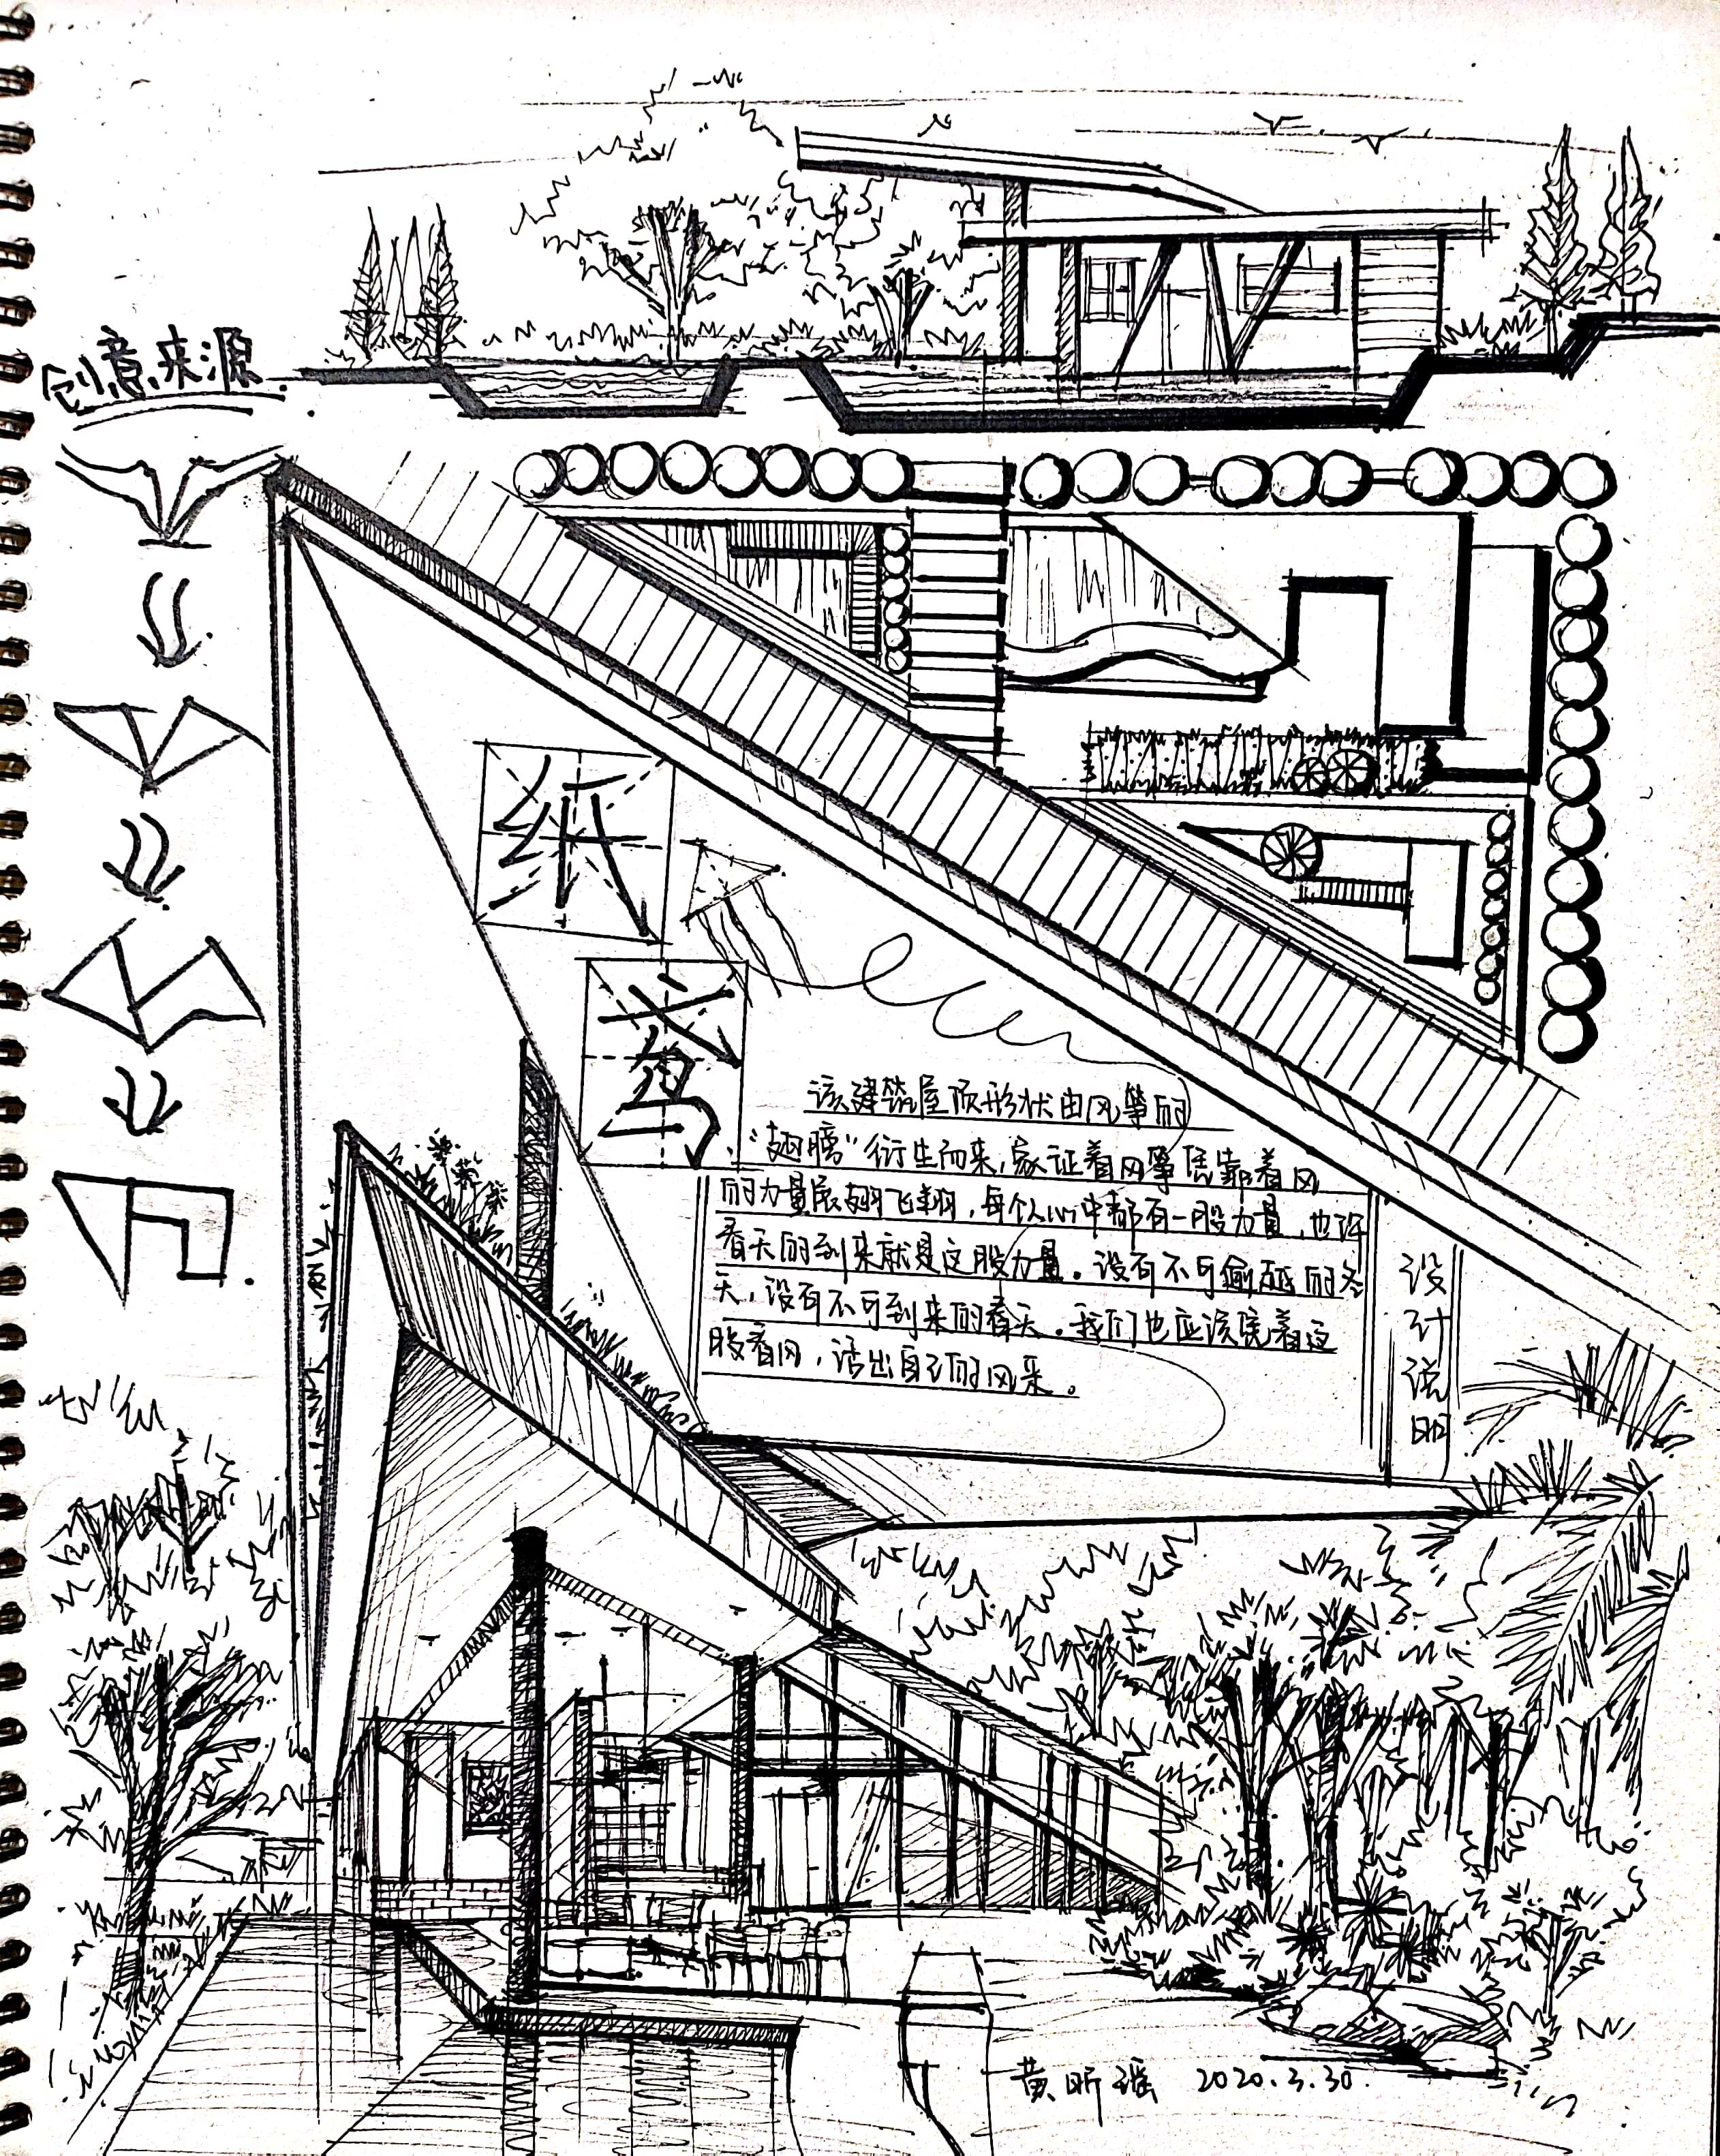 创意来源
纸
鸢
该建筑屋顶形状由风筝的
“翅膀”衍生而来，象征着风筝凭靠着风
的力量展翅飞翔，每个人心中都有一股力量，也许
春天的到来就是这股力量。没有不可逾越的冬
天，没有不可到来的春天。我们也应该凭着这
股春风，活出自己的风采。
设计说明
黄昕瑶 2020.3.30.